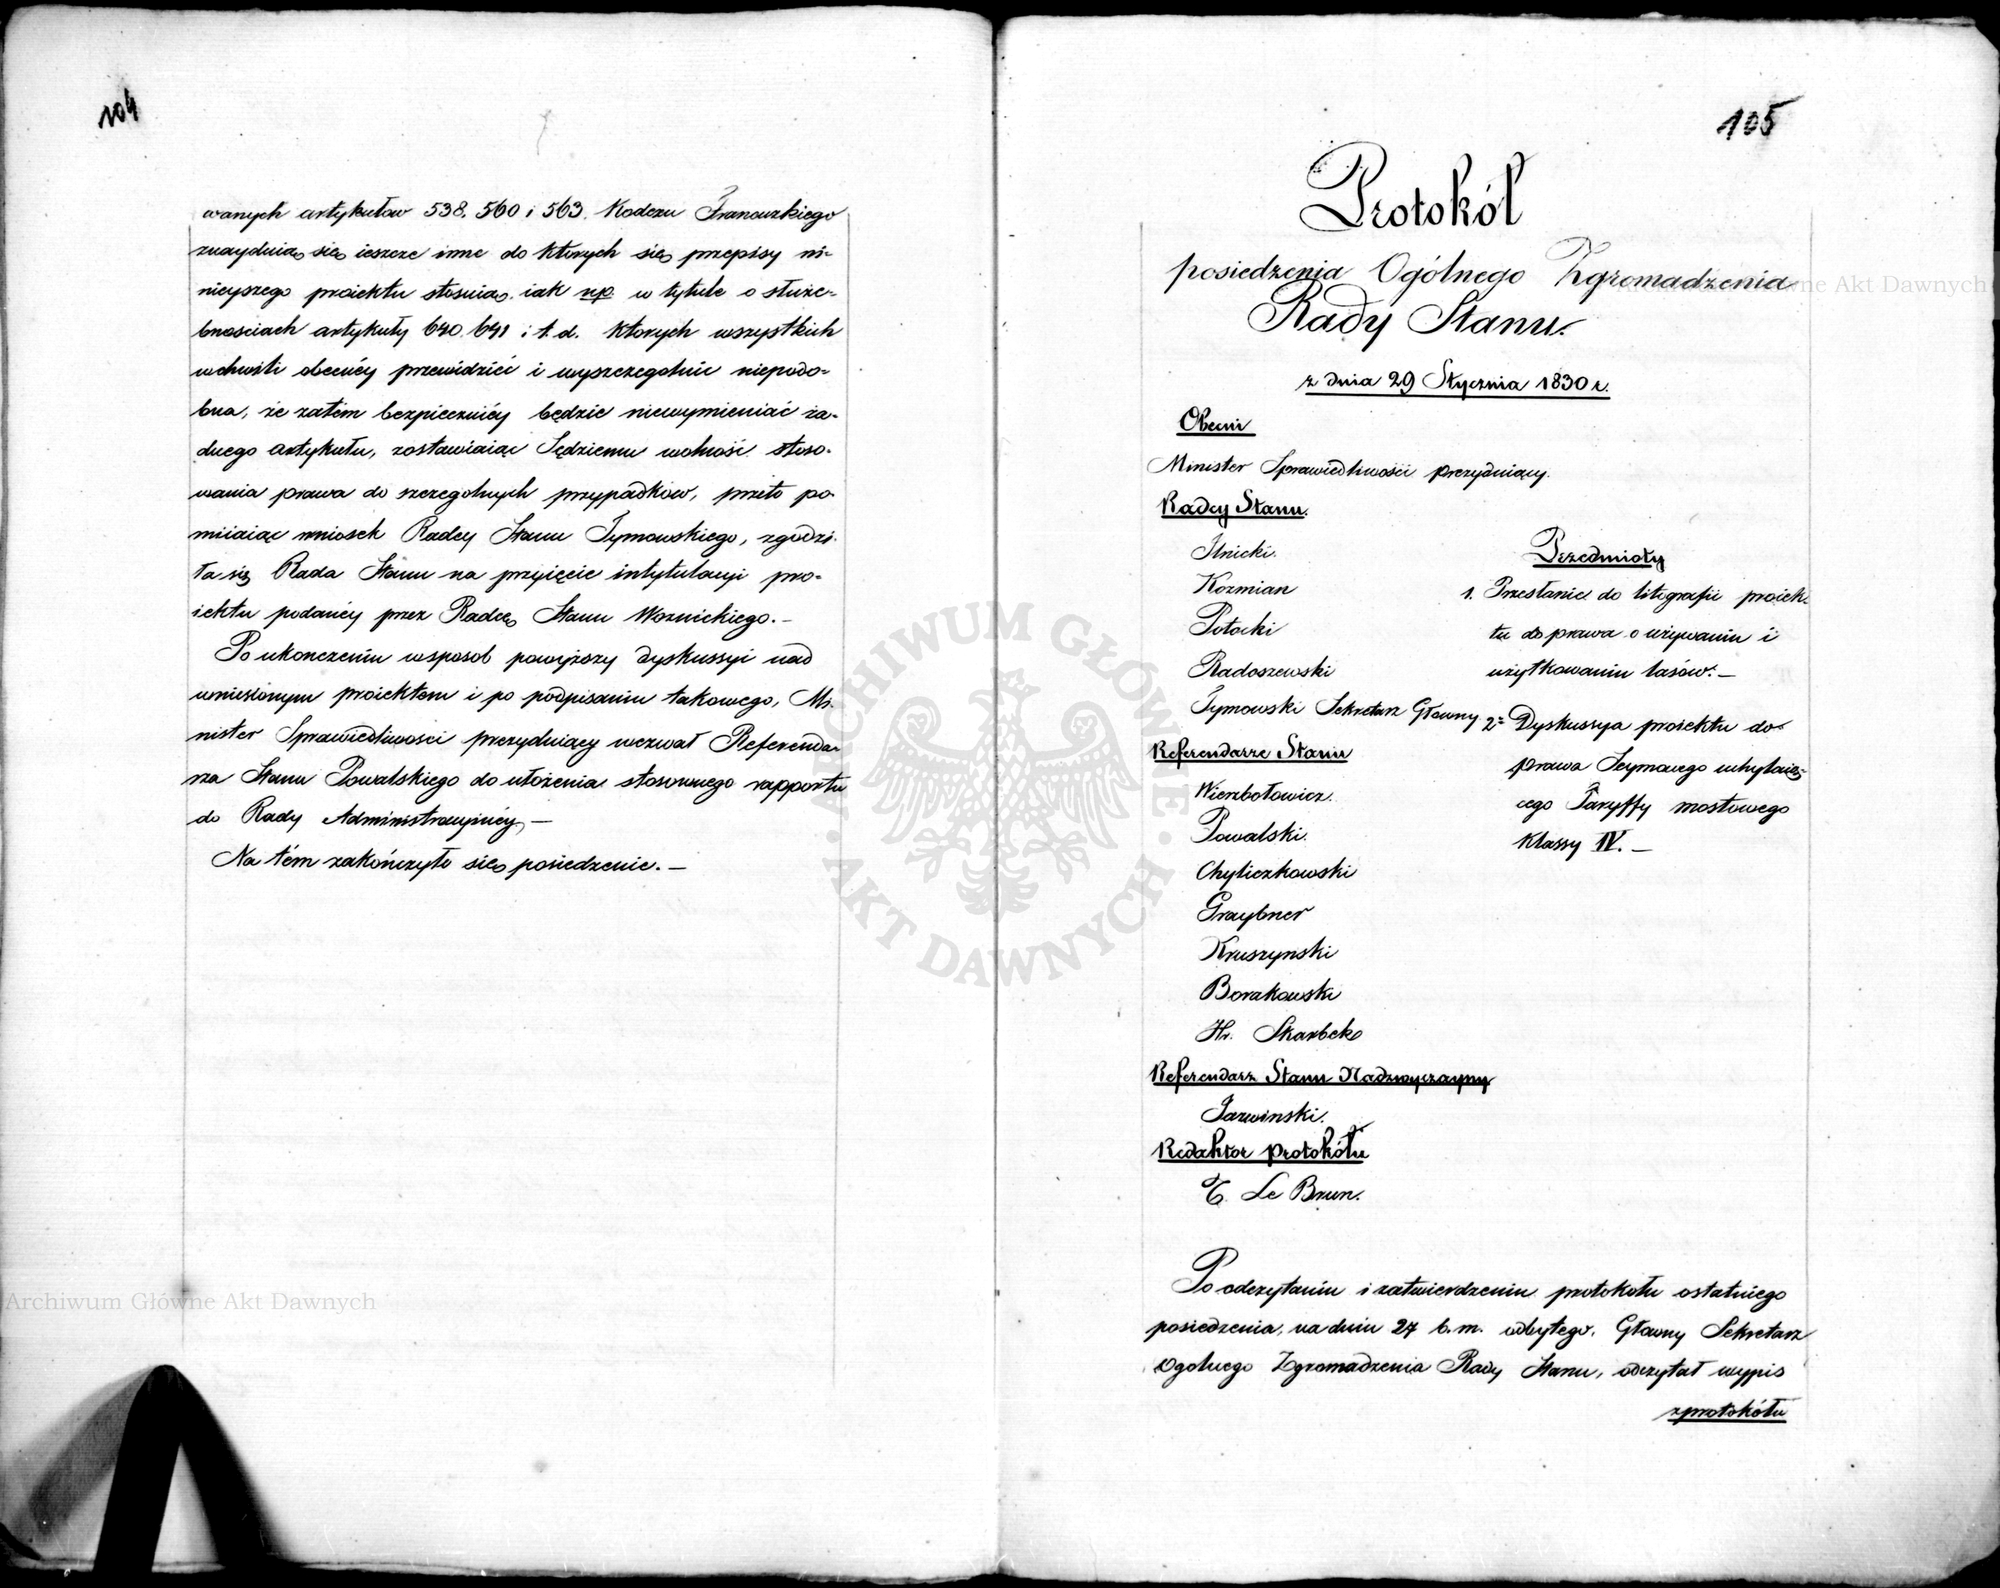 104
wanych artykułow 538. 560 i 563. Kodexu Francuzkiego
znayduią się ieszcze inne do których się przepisy ni-
nieyszego proiektu stosuią, iak np. w tytule o służe-
bnosciach artykuły 640. 641 i t. d. których wszystkich
w chwili obecnéy przewidzićć i wyszczegolnić niepodo-
bna, że zatém bezpiecznićy będzie niewymieniać ża-
dnego artykułu, zostawiaiąc Sędziemu wolność stoso-
wania prawa do szczegolnych przypadków, przeto po-
miiaiąc wniosek Radcy Stanu Tymowskiego, zgodzi-
ła się Rada Stanu na przyięcie intytulacyi pro-
iektu podanéy przez Radcę Stanu Woznickiego. –
Po ukonczeniu w sposob powyższy dyskussyi nad
wniesionym proiektem i po podpisaniu takowego, Mi-
nister Sprawiedliwosci prezyduiący wezwał Referenda-
rza Stanu Powalskiego do ułożenia stosownego rapportu
do Rady Administracyinéy. –
Na tém zakończyło się posiedzenie. –
105
Protokół
posiedzenia Ogólnego Zgromadzenia
Rady Stanu.
z dnia 29 Stycznia 1830 r.
Obecni
Minister Sprawiedliwości prezyduiący.
Radcy Stanu.
Ilnicki.
Kozmian
Potocki
Radoszewski
Tymowski Sekretarz Główny
Referendarze Stanu
Wierzbołowicz.
Powalski.
Chyliczkowski
Graybner
Kruszynski
Borakowski
Hr. Skarbek
Referendarz Stanu Nadzwyczayny
Jarwinski.
Redaktor protokółu
E. Le Brun.
Przedmioty
1. Przesłanie do litografii proiek-
tu do prawa o używaniu i
użytkowaniu lasów. –
2. Dyskussya proiektu do
prawa Seymowego uchylaią-
cego Taryffy mostowego
Klassy IV. –
Po odczytaniu i zatwierdzeniu protokołu ostatniego
posiedzenia, na dniu 27 b. m. odbytego, Główny Sekretarz
Ogolnego Zgromadzenia Rady Stanu, odczytał wypis
z protokółu
Archiwum Główne Akt Dawnych
Archiwum Główne Akt Dawnych
ARCHIWUM GŁÓWNE · AKT DAWNYCH ·